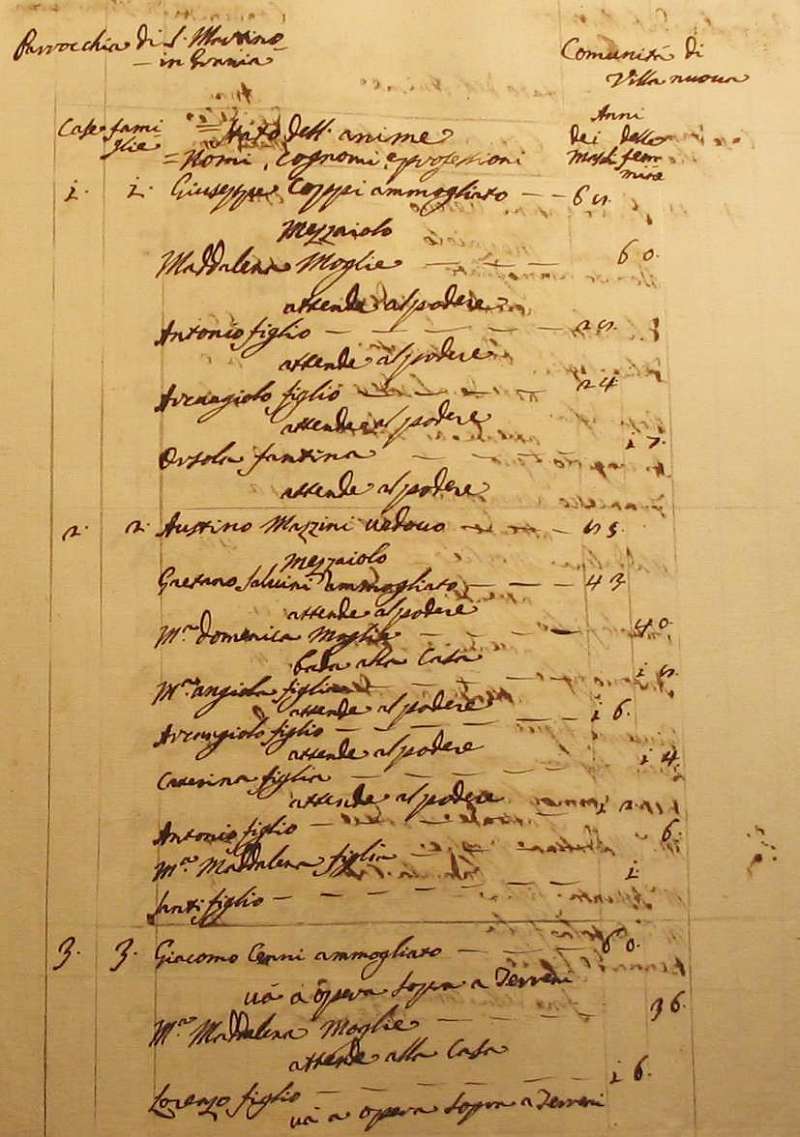 Parrocchia di S. Martino
in Grania
Comunità di
Villa nuova
Case fami
glie
Stato dell' anime
= Nomi, Cognomi, e professioni
Anni
dei delle
Maschi fem
mine
1. 1. Giuseppe Coppi ammogliato — — 65.
Mezzaiolo
Maddalena Moglie — — — 60.
attende al podere
Antonio figlio — — — — 25.
attende al podere
Arcangiolo figlio — — — — 24
attende al podere
Orsola fantina 17.
attende al podere
2. 2. Austino Mazzini vedovo — — — 53
Mezzaiolo
Gaetano Salvini ammogliato — — — 43
attende al podere
M.a domenica Moglie — — — 40
bada alla Casa
M.a angiola figlia — — — 15.
attende al podere
Arcangiolo figlio — — — 16.
attende al podere
Caterina figlia — — — 14.
attende al podere
Antonio figlio — — — 12.
M.a Maddalena figlia — — — 6.
Santi figlio — — — — 1
3. 3. Giacomo Cenni ammogliato — — — 60.
và à opera sopra a Terreni
M.a Maddalena Moglie — — — 36.
attende alla Casa
Lorenzo figlio — — — 16.
và a opera sopra a Terreni